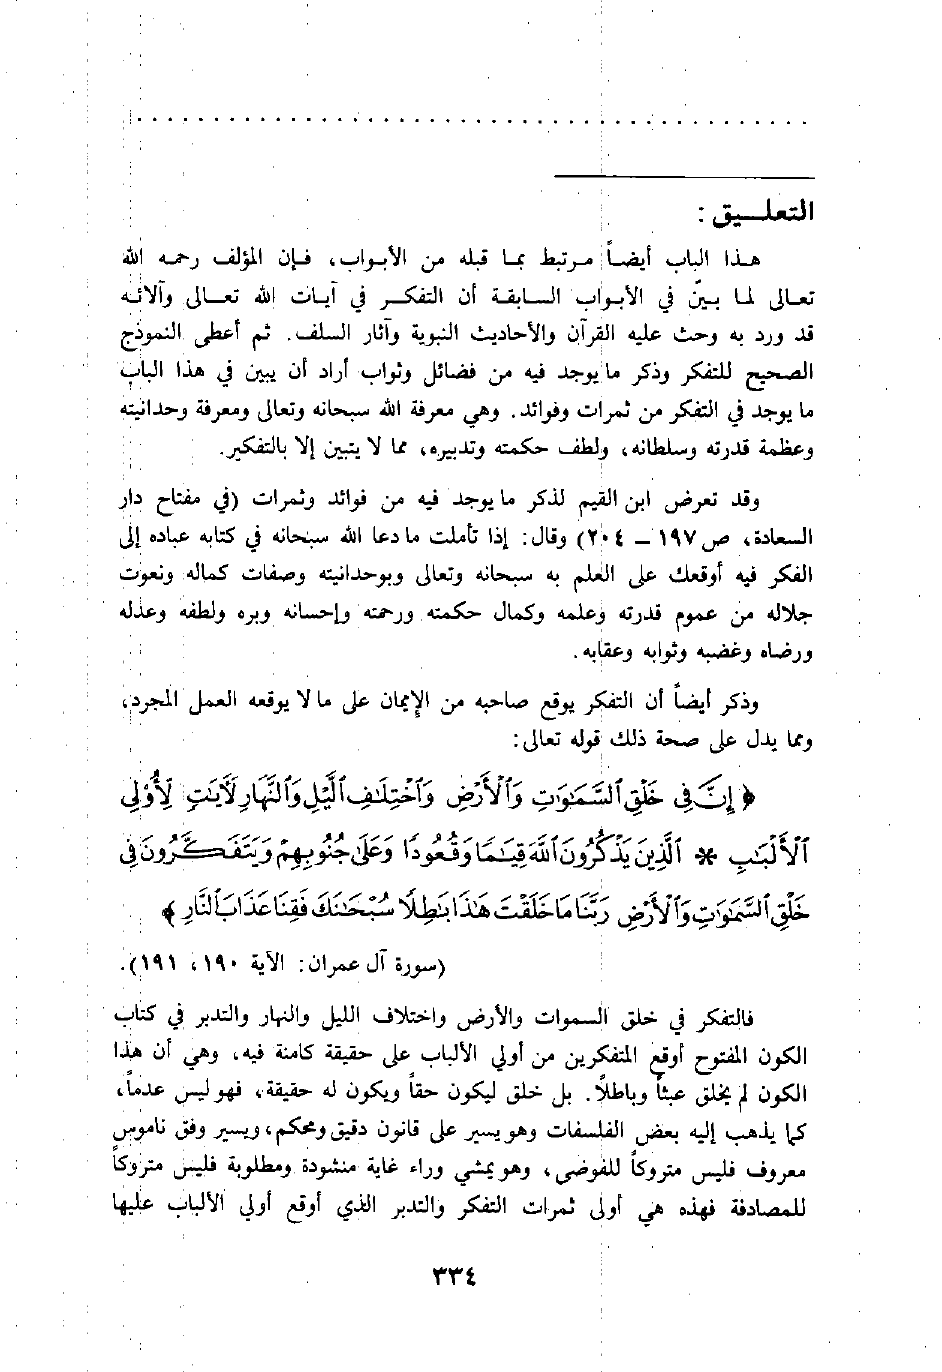 التعليق :
هذا الباب أيضاً مرتبط بما قبله من الأبواب، فإن المؤلف رحمه الله
تعالى لما بيّن في الأبواب السابقة أن التفكر في آيات الله تعالى وآلائه
قد ورد به وحث عليه القرآن والأحاديث النبوية وآثار السلف. ثم أعطى النموذج
الصحيح للتفكر وذكر ما يوجد فيه من فضائل وثواب أراد أن يبين في هذا الباب
ما يوجد في التفكر من ثمرات وفوائد. وهي معرفة الله سبحانه وتعالى ومعرفة وحدانيته
وعظمة قدرته وسلطانه، ولطف حكمته وتدبيره، مما لا يتبين إلا بالتفكير.
وقد تعرض ابن القيم لذكر ما يوجد فيه من فوائد وثمرات (في مفتاح دار
السعادة، ص ١٩٧ ـ ٢٠٤) وقال: إذا تأملت ما دعا الله سبحانه في كتابه عباده إلى
الفكر فيه أوقعك على العلم به سبحانه وتعالى وبوحدانيته وصفات كماله ونعوت
جلاله من عموم قدرته وعلمه وكمال حكمته ورحمته وإحسانه وبره ولطفه وعدله
ورضاه وغضبه وثوابه وعقابه.
وذكر أيضاً أن التفكر يوقع صاحبه من الإيمان على ما لا يوقعه العمل المجرد،
ومما يدل على صحة ذلك قوله تعالى:
﴿ إِنَّ فِي خَلْقِ ٱلسَّمَٰوَٰتِ وَٱلْأَرْضِ وَٱخْتِلَٰفِ ٱلَّيْلِ وَٱلنَّهَارِ لَأٓيَٰتٍ لِّأُوْلِي
ٱلْأَلْبَٰبِ * ٱلَّذِينَ يَذْكُرُونَ ٱللَّهَ قِيَٰمًا وَقُعُودًا وَعَلَىٰ جُنُوبِهِمْ وَيَتَفَكَّرُونَ فِي
خَلْقِ ٱلسَّمَٰوَٰتِ وَٱلْأَرْضِ رَبَّنَا مَا خَلَقْتَ هَٰذَا بَٰطِلًا سُبْحَٰنَكَ فَقِنَا عَذَابَ ٱلنَّارِ ﴾
(سورة آل عمران: الآية ١٩٠، ١٩١).
فالتفكر في خلق السموات والأرض واختلاف الليل والنهار والتدبر في كتاب
الكون المفتوح أوقع المتفكرين من أولي الألباب على حقيقة كامنة فيه، وهي أن هذا
الكون لم يخلق عبثاً وباطلاً. بل خلق ليكون حقاً ويكون له حقيقة، فهو ليس عدماً،
كما يذهب إليه بعض الفلسفات وهو يسير على قانون دقيق ومحكم، ويسير وفق ناموس
معروف فليس متروكاً للفوضى، وهو يمشي وراء غاية منشودة ومطلوبة فليس متروكاً
للمصادفة فهذه هي أولى ثمرات التفكر والتدبر الذي أوقع أولي الألباب عليها
٣٣٤